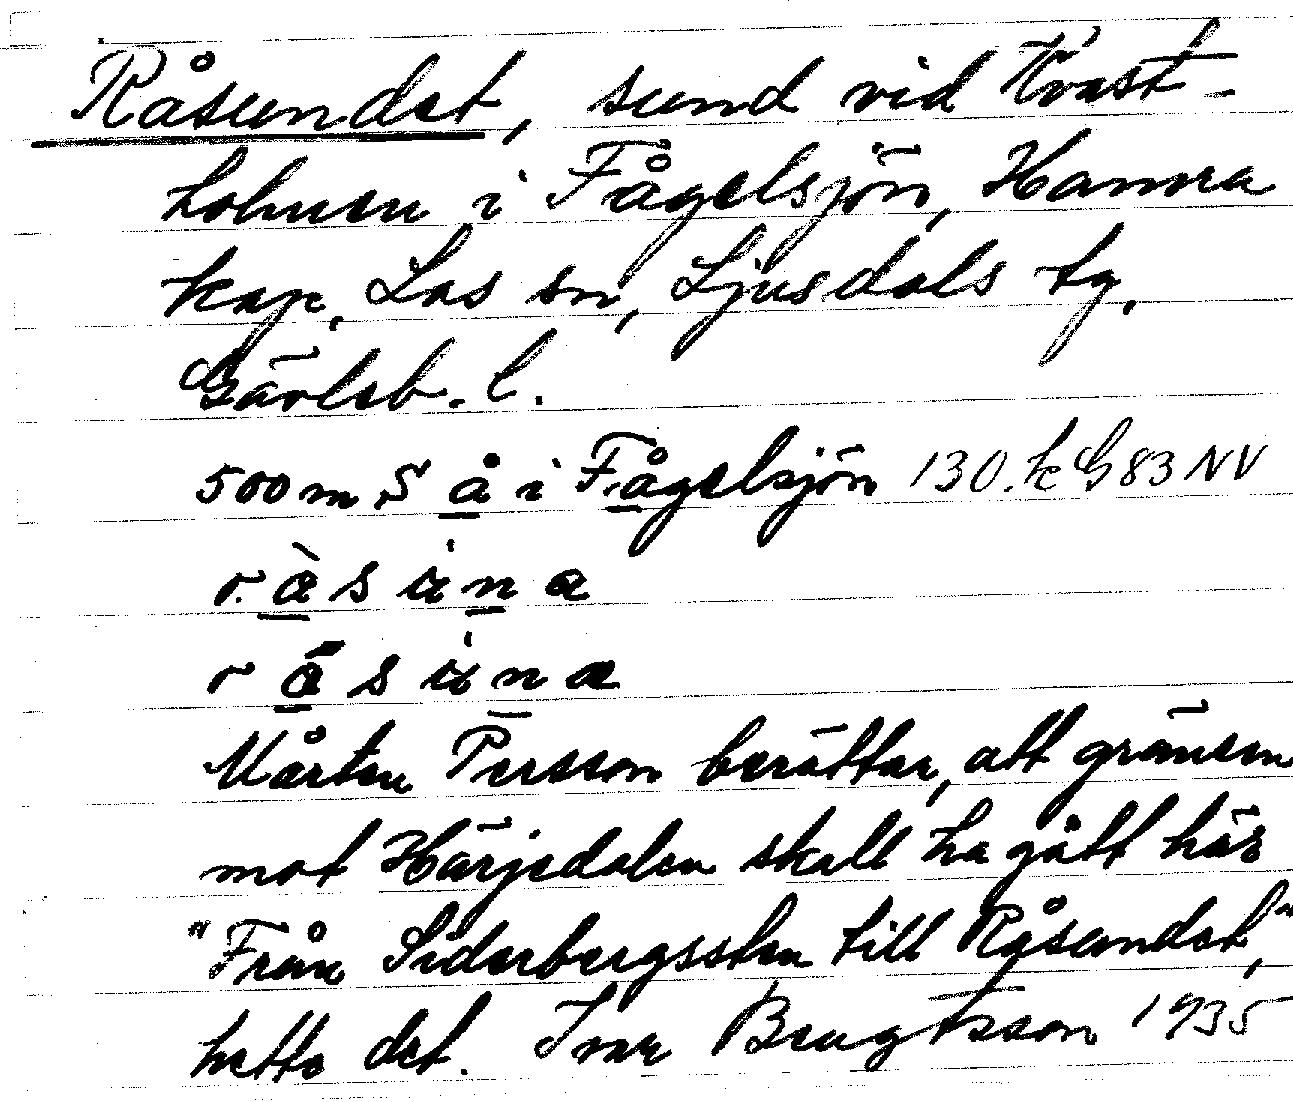 Råsundet, sund vid Kvast-
holmen i Fågelsjön, Hamra
kap, Los sn, Ljusdals tg,
Gävleb. l.
500 m S å i Fågelsjön 130. k G 83 NV
Mårten Persson berättar, att gränsen
mot Härjedalen skall ha gått här
"Från Siderbergssten till Råsundet,"
hette det. Ivar Bengtsson 1935